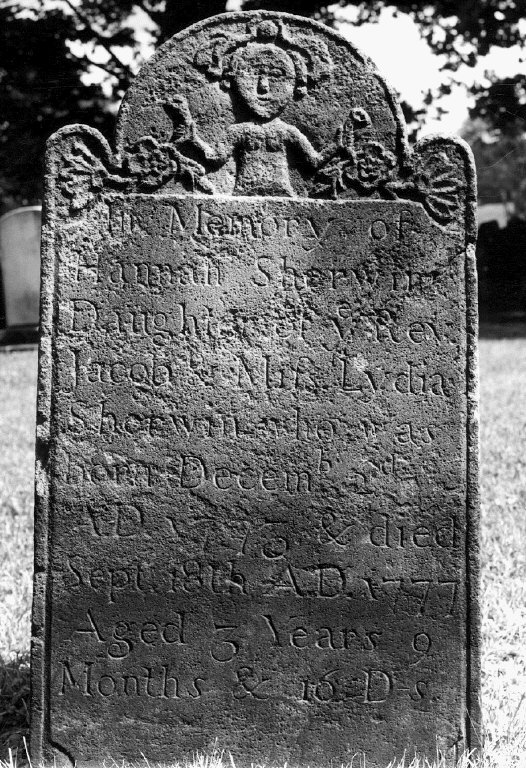 In Memory of
Hannah Sherwin
Daughter of yͤ Rev.
Jacob & Mrſs Lydia
Sherwin who was
born Decemᵇ 2ᵈ
AD. 1773 & died
Sept. 18th A.D. 1777
Aged 3 Years 9
Months & 16 D-s.